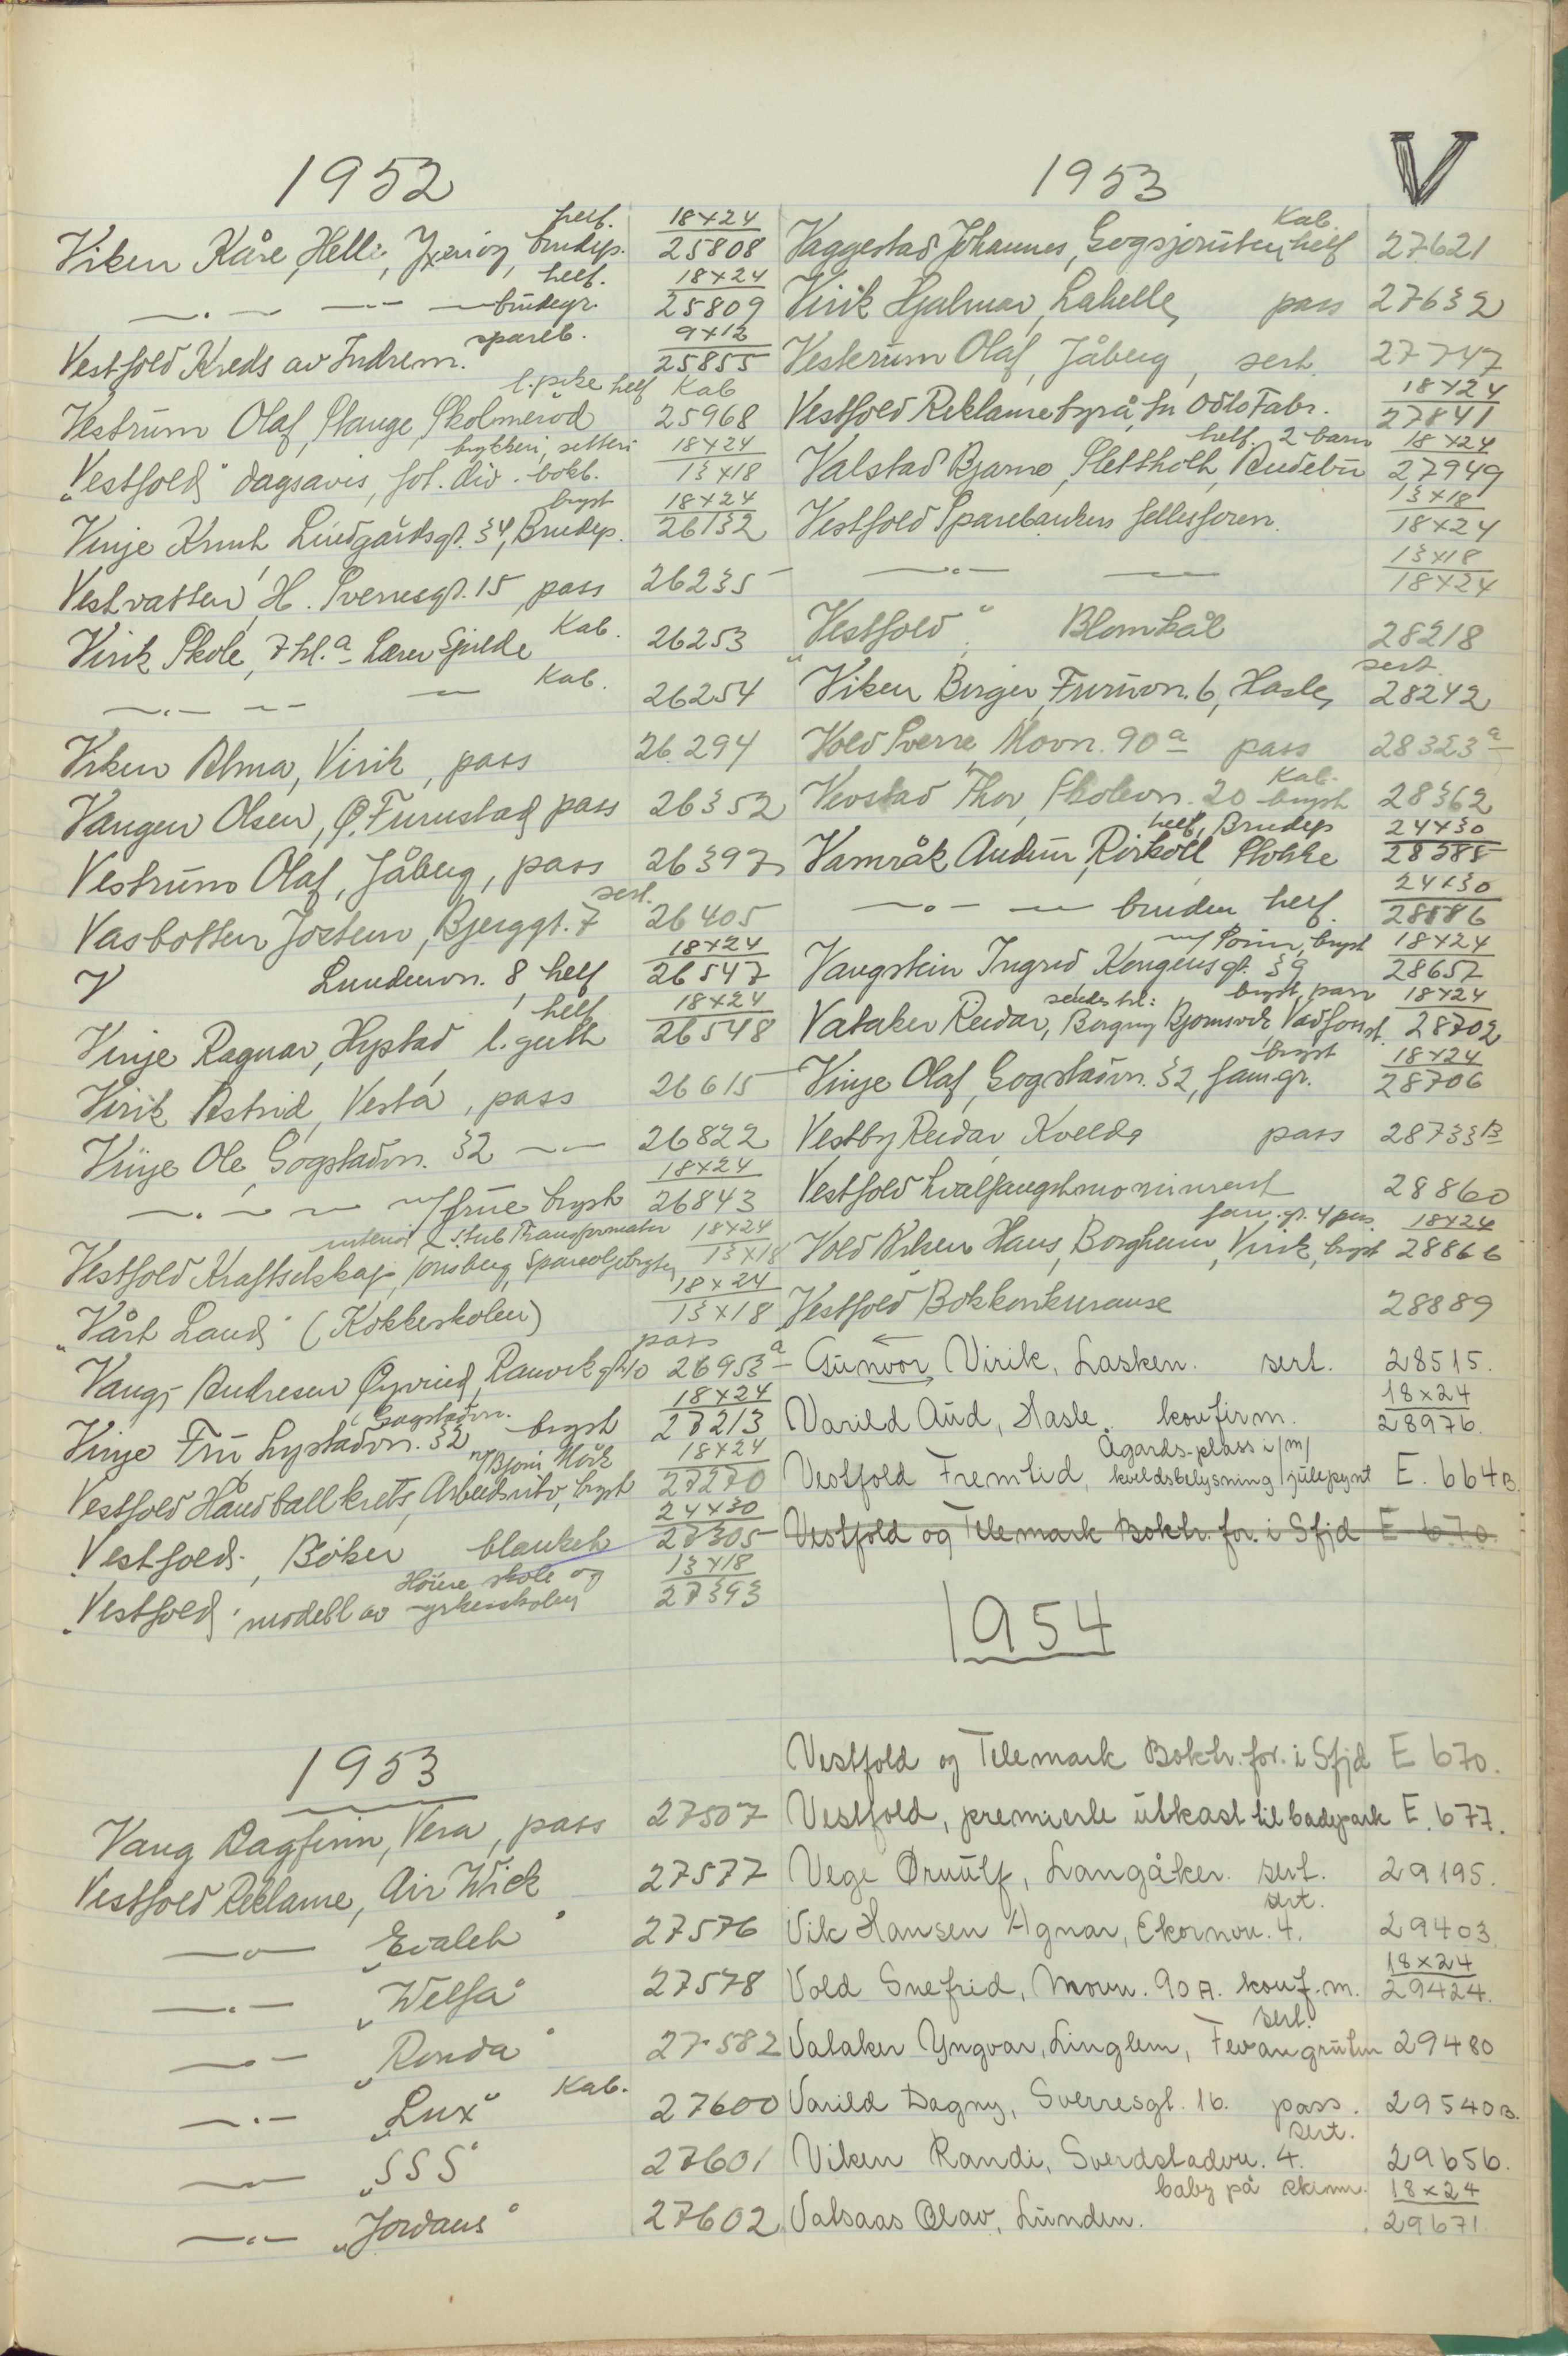 V
1952
Viken Kåre, Helle, brudep. helf. 18x24 25808
—.— — — brudegr. helf. 18x24 25809
Vestfold Kreds av Indrem. spareb. 9x12 25855
Vestrum Olaf, Stange, Skolmerød l. pike helf Kab 25968
"Vestfold" dagsavis, fot. div. bokb. trykkeri, setteri 18x24 13x18
Vinje Knut Lindgårdsgt. 34, Brudep. bryst 18x24 26132
Vestvatten, H. Sverresgt. 15, pass 26235
Virik Skole, 7 kl. a Lærer Gjelde Kab. 26253
—.— — — Kab. 26254
Viken Alma, Virik, pass 26294
Vangen Olsen, Ø. Furustad, pass 26352
Vestrum Olaf, Jåberg, pass 26397
Vasbotten Jostein, Bjerggt. 7 sert. 26405
V Lundenvn. 8, helf 18x24 26547
Vinje Ragnar, Hystad l. gutt helf 18x24 26548
Virik Astrid, Vesta, pass 26615
Vinje Ole, Gogstadvn. 32 — — 26822
—.— — — m/frue bryst 18x24 26843
Vestfold Kraftselskap, Tønsberg, interiør & st. Transformator 18x24 13x18
"Vårt Land" (Kokkeskolen) 18x24 13x18
Vangs Andresen Øyvind, Ranvikgt. 10 pass 26953 a
Vinje Fru Lystadvn. 32 Gogstadvn. bryst 18x24 27213
Vestfold Håndballkrets, Arbeidsutv, bryst m/Bjørn Mörk 18x24 27270
"Vestfold", Bøker blankett 24x30 27305
"Vestfold" modell av Höiere skole og yrkesskolen 13x18 27393
1953
Vang Dagfinn, Vera, pass 27507
Vestfold Reklame, Air Wick 27577
—o— "Evalet" 27576
—.— "Welfa" 27578
—.— "Ronda" 27582
—.— "Lux" Kab. 27600
—.— "SSS" 27601
—.— "Jordans" 27602
1953
Vaggestad Johannes, Gogsjøruten, helf Kab. 27621
Virik Hjalmar, Lahelle, pass 27632
Vestrum Olaf, Jåberg, sert. 27747
Vestfold Reklamebyrå, fr Odlo Fabr. 18x24 27841
Valstad Bjarne, Slettholt, Andebu helf. 2 barn 18x24 27949
Vestfold Sparebankers fellesforen. 13x18 18x24
—.— — 13x18 18x24
"Vestfold" Blomkål 28218
Viken Birger, Furuvn. 6, Hasle, sert. 28242
Vold Sverre, Movn. 90 a pass 28323 a
Vevstad Thor, Skolevn. 20 bryst Kab. 28362
Vamråk Audun, Rirkoll Stokke helf, Brudep 24x30 28585
—.— — bruden helf. 24x30 28586
Vangstein Ingrid Kongensgt. 39 m/Sönn, bryst 18x24 28657
Vataker Reidar, sendes til: Borgny Bjørnsvik Vadfosst. bryst, pass 18x24 28702
Vinje Olaf, Gogstadvn. 32, fam.gr. bryst 18x24 28706
Vestby Reidar, Kvelde pass 28733 B
Vestfold hvalfangstmonument 28860
Vold Viken Hans, Borgheim, Virik, bryst fam. gr. 4 pers. 18x24 28866
Vestfold Bokkonkuranse 28889
Gunvor Virik, Lasken. sert. 28515.
Varild Aud, Hasle. konfirm. 18x24 28976.
Vestfold Fremtid, Ågårds-plass i/m/ kveldsbelysning/julepynt E. 664 B.
Vestfold og Telemark Bokh. for. i Sfjd E 670.
1954
Vestfold og Telemark Bokh. for. i Sfjd E 670.
Vestfold, premierte utkast til badepark E. 677.
Vege Ørnulf, Langåker. sert. 29195.
Vik Hansen Agnar, Ekornvn. 4. sert. 29403.
Vold Snefrid, Movn. 90 A. konf. m. 18x24 29424.
Valaker Yngvar, Linglem, Fevangruten sert. 29480
Varild Dagny, Sverresgt. 16. pass. 29540 B.
Viken Randi, Sverdstadvn. 4. sert. 29656.
Valsaas Olav, Lunden. baby på skinn. 18x24 29671.